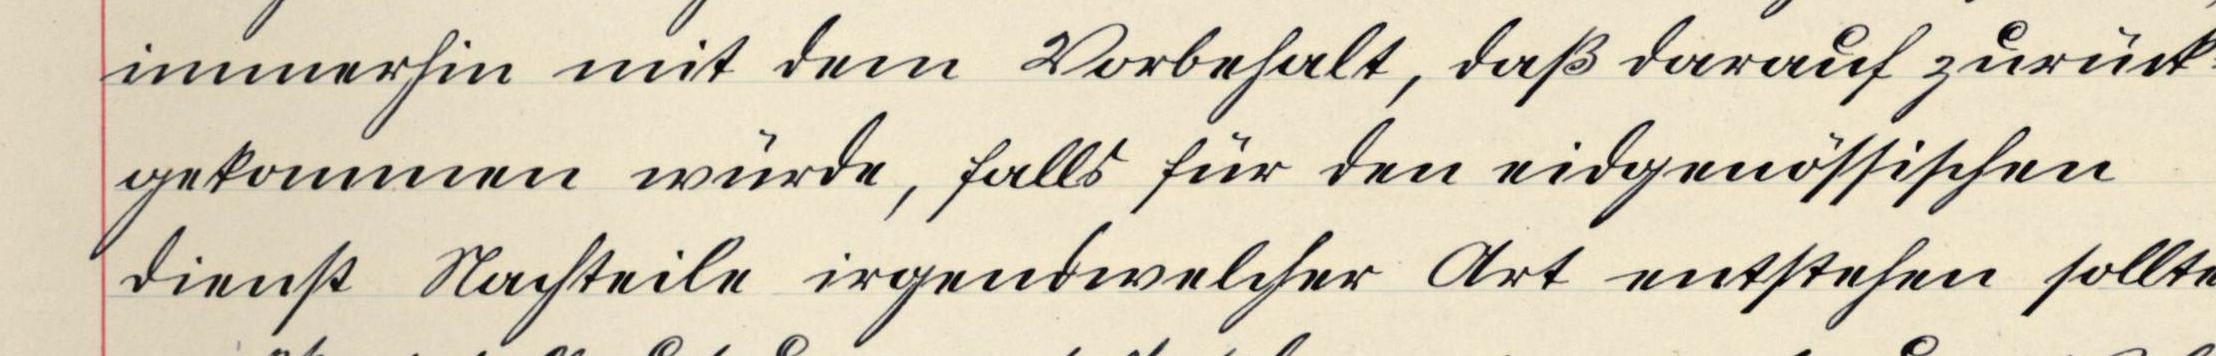 immerhin mit dem Vorbehalt, daß darauf zurück-
gekommen würde, falls für den eidgenössischen
Dienst Nachteile irgendwelcher Art entstehen sollte